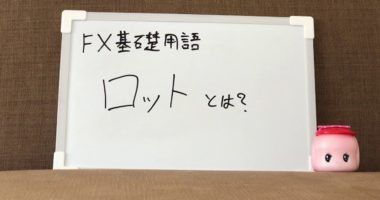 FX基礎用語
ロットとは?